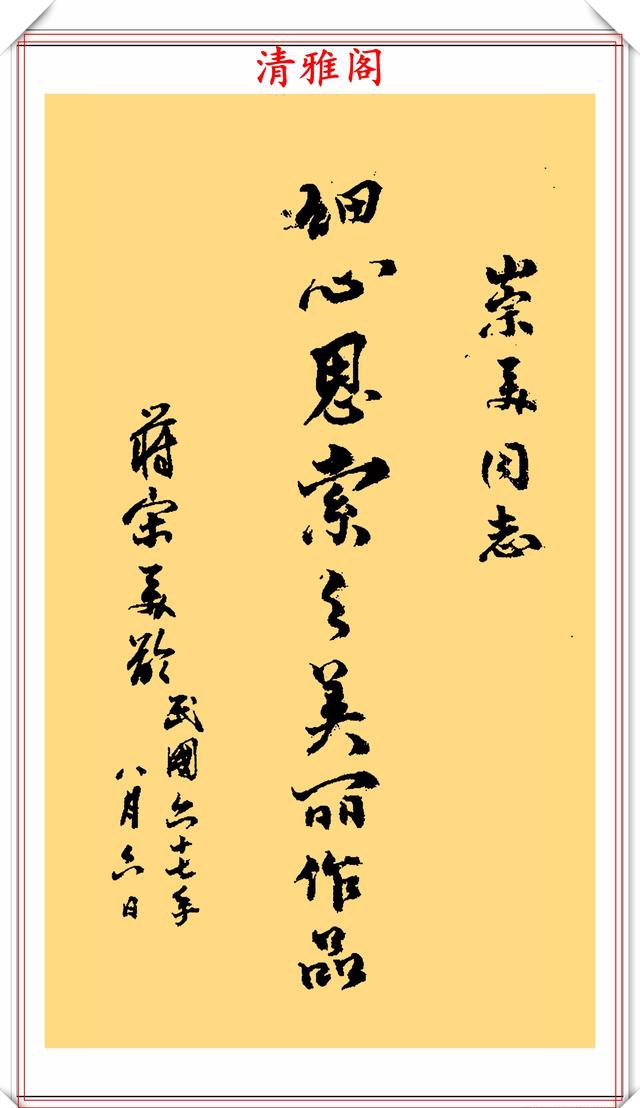 清雅阁
崇美同志
细心思索之美丽作品
蒋宋美龄
民國六十七年
八月六日